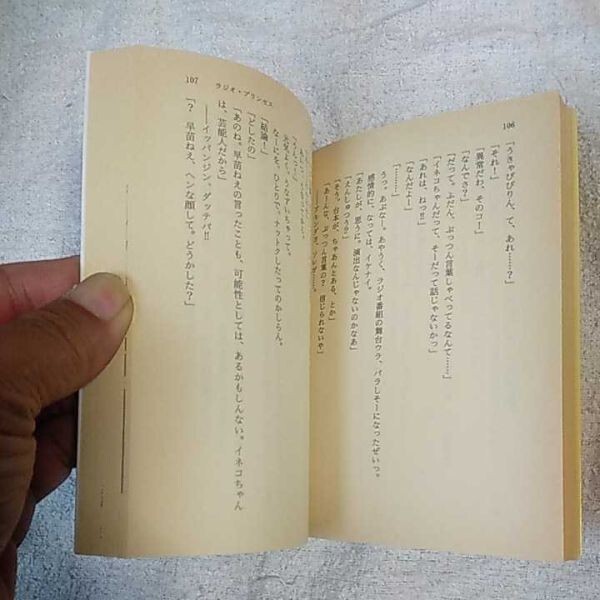 106
「うきゃぴぴりん、て、あれ……？」
「それ！」
「異常だわ、そのコー」
「なんでさ？」
「だって、ふだん、ぷっつん言葉しゃべってるなんて……」
「イネコちゃんだって、そーだって話じゃないかっ」
「あれは、ねっ!!」
「なんだよー」
「………」
うっ。あぶなー。あやうく、ラジオ番組の舞台ウラ、バラしそーになったぜいっ。
感情的に、なっては、イケナイ。
「あたしが、思うに。演出なんじゃないのかなあ」
「えんしゅつう？」
「そう。台本が、ちゃあんとある、とか」
「あーんな、ぷっつん言葉の？　信じられないや」
107
ラジオ・プリンセス
なーにを、ひとりで、ナットクしたってのかしらん。
「結論！」
「としたの」
「あのね。早苗ねえの言ったことも、可能性としては、あるかもしんない。イネコちゃん
は、芸能人だから」
――イッパンジン、ダッテバ!!
「？　早苗ねえ、ヘンな顔して。どうかした？」